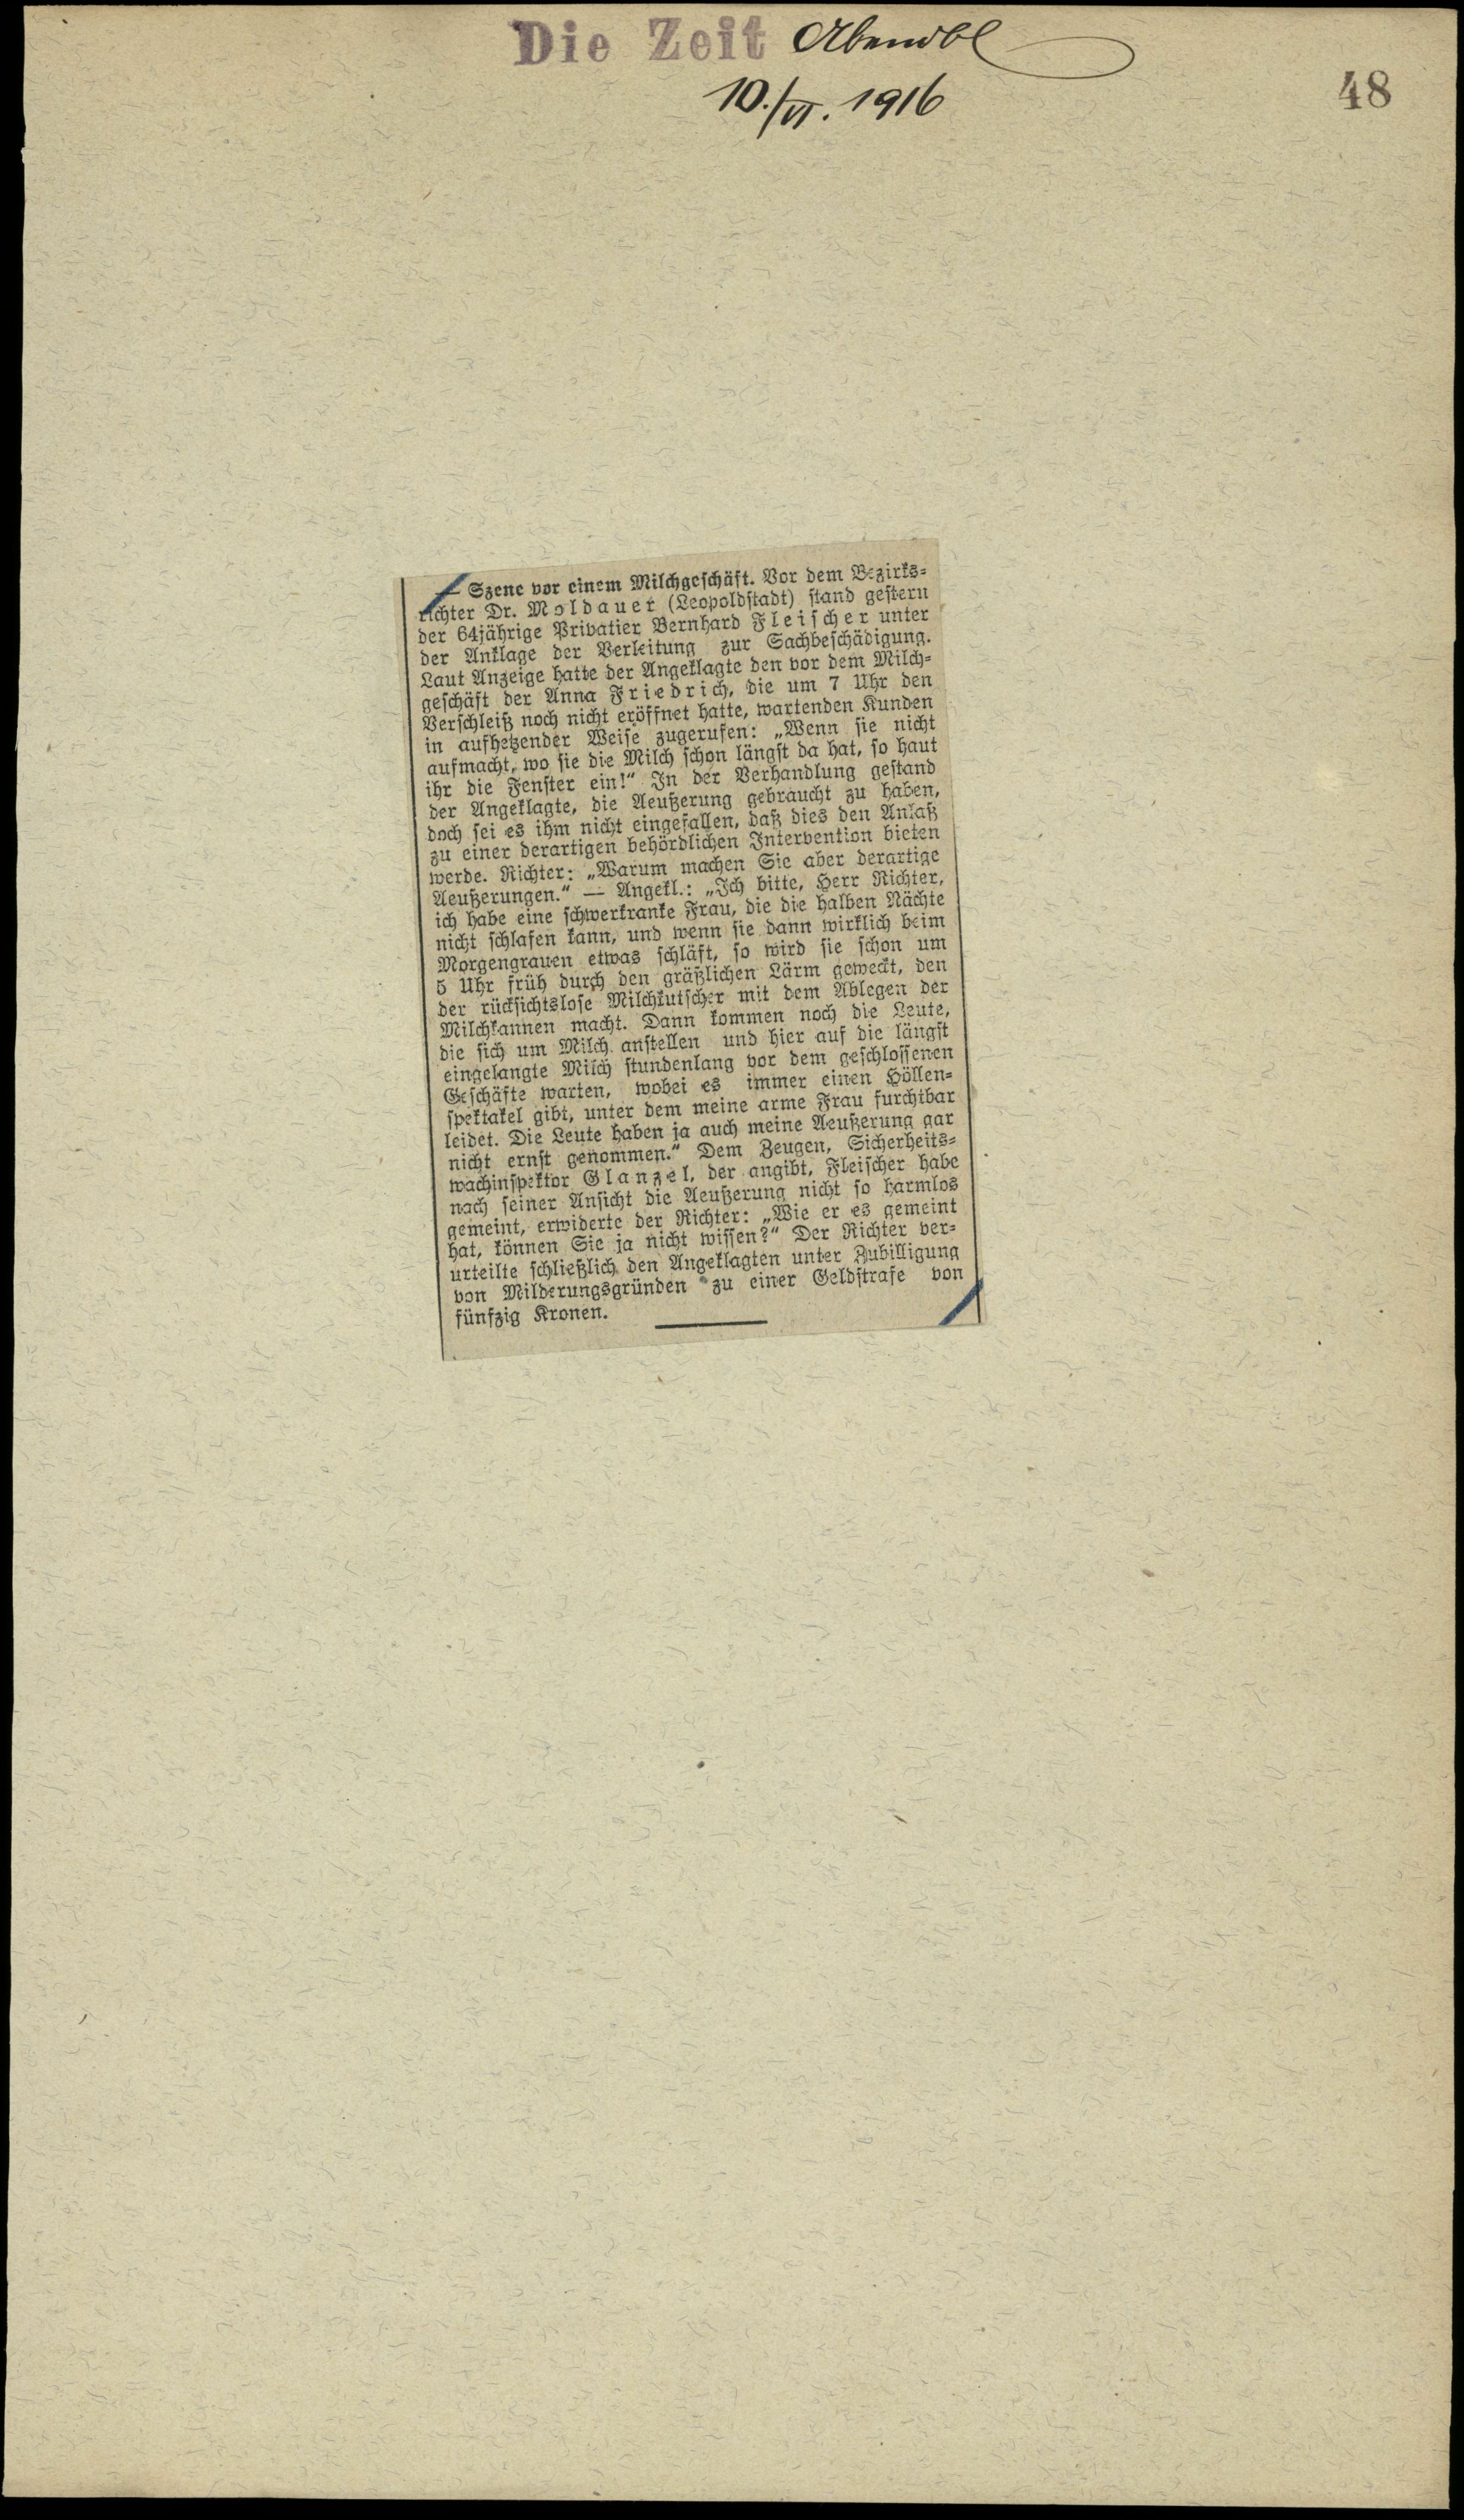 Die Zeit Abendbl
10./VI. 1916
48
— Szene vor einem Milchgeschäft. Vor dem Bezirks-
richter Dr. Moldauer (Leopoldstadt) stand gestern
der 64jährige Privatier Bernhard Fleischer unter
der Anklage der Verleitung zur Sachbeschädigung.
Laut Anzeige hatte der Angeklagte den vor dem Milch-
geschäft der Anna Friedrich, die um 7 Uhr den
Verschleiß noch nicht eröffnet hatte, wartenden Kunden
in aufhetzender Weise zugerufen: „Wenn sie nicht
aufmacht, wo sie die Milch schon längst da hat, so haut
ihr die Fenster ein!“ In der Verhandlung gestand
der Angeklagte, die Aeußerung gebraucht zu haben,
doch sei es ihm nicht eingefallen, daß dies den Anlaß
zu einer derartigen behördlichen Intervention bieten
werde. Richter: „Warum machen Sie aber derartige
Aeußerungen.“ — Angekl.: „Ich bitte, Herr Richter,
ich habe eine schwerkranke Frau, die die halben Nächte
nicht schlafen kann, und wenn sie dann wirklich beim
Morgengrauen etwas schläft, so wird sie schon um
5 Uhr früh durch den gräßlichen Lärm geweckt, den
der rücksichtslose Milchkutscher mit dem Ablegen der
Milchkannen macht. Dann kommen noch die Leute,
die sich um Milch anstellen und hier auf die längst
eingelangte Milch stundenlang vor dem geschlossenen
Geschäfte warten, wobei es immer einen Höllen-
spektakel gibt, unter dem meine arme Frau furchtbar
leidet. Die Leute haben ja auch meine Aeußerung gar
nicht ernst genommen.“ Dem Zeugen, Sicherheits-
wachinspektor Glanzel, der angibt, Fleischer habe
nach seiner Ansicht die Aeußerung nicht so harmlos
gemeint, erwiderte der Richter: „Wie er es gemeint
hat, können Sie ja nicht wissen?“ Der Richter ver-
urteilte schließlich den Angeklagten unter Zubilligung
von Milderungsgründen zu einer Geldstrafe von
fünfzig Kronen.